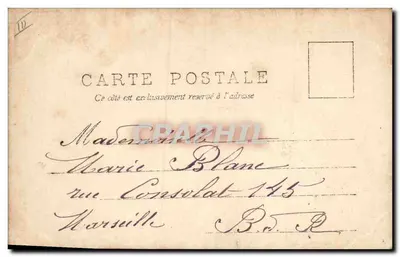 CARTE POSTALE
Ce côté est exclusivement réservé à l'adresse
Mademoiselle
Marie Blanc
rue Consolat 145
Marseille B. d. R